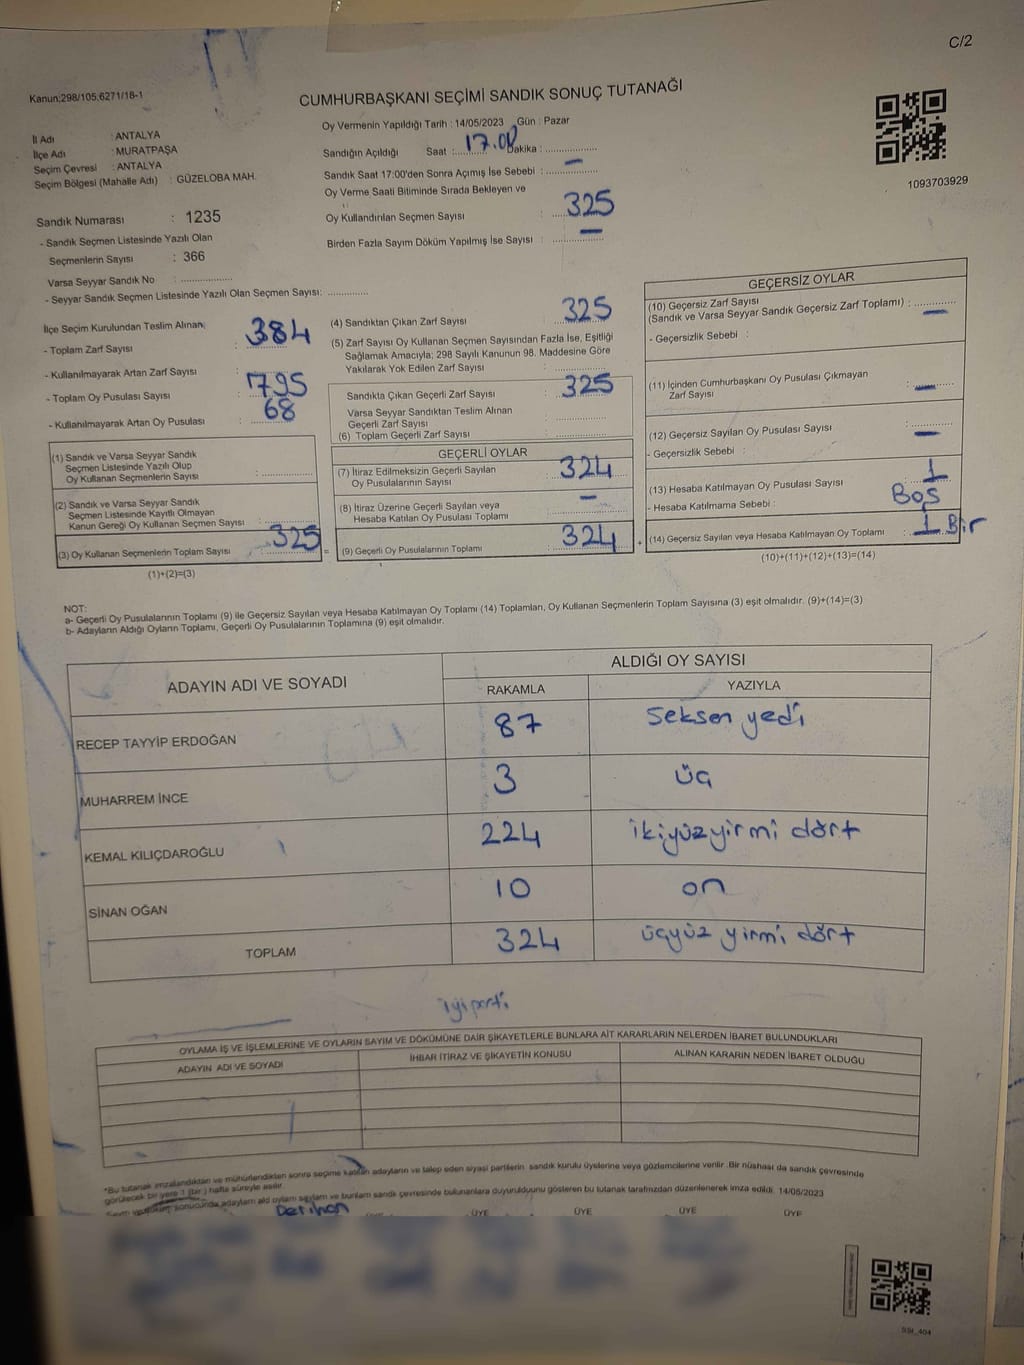 C/2
Kanun:298/105;6271/18-1
CUMHURBAŞKANI SEÇİMİ SANDIK SONUÇ TUTANAĞI
İl Adı : ANTALYA
İlçe Adı : MURATPAŞA
Seçim Çevresi : ANTALYA
Seçim Bölgesi (Mahalle Adı) : GÜZELOBA MAH.
Oy Vermenin Yapıldığı Tarih : 14/05/2023 Gün : Pazar
Sandığın Açıldığı Saat :..17.00 Dakika :
Sandık Saat 17:00'den Sonra Açımış İse Sebebi : —
Oy Verme Saati Bitiminde Sırada Bekleyen ve
Oy Kullandırılan Seçmen Sayısı : 325
Birden Fazla Sayım Döküm Yapılmış İse Sayısı : —
1093703929
Sandık Numarası : 1235
- Sandık Seçmen Listesinde Yazılı Olan
Seçmenlerin Sayısı : 366
Varsa Seyyar Sandık No :
- Seyyar Sandık Seçmen Listesinde Yazılı Olan Seçmen Sayısı:
İlçe Seçim Kurulundan Teslim Alınan;
- Toplam Zarf Sayısı : 384
- Kullanılmayarak Artan Zarf Sayısı :
- Toplam Oy Pusulası Sayısı : 795
- Kullanılmayarak Artan Oy Pusulası : 68
(1) Sandık ve Varsa Seyyar Sandık
Seçmen Listesinde Yazılı Olup
Oy Kullanan Seçmenlerin Sayısı :
(2) Sandık ve Varsa Seyyar Sandık
Seçmen Listesinde Kayıtlı Olmayan
Kanun Gereği Oy Kullanan Seçmen Sayısı :
(3) Oy Kullanan Seçmenlerin Toplam Sayısı : 325
(1)+(2)=(3)
(4) Sandıktan Çıkan Zarf Sayısı : 325
(5) Zarf Sayısı Oy Kullanan Seçmen Sayısından Fazla İse, Eşitliği
Sağlamak Amacıyla; 298 Sayılı Kanunun 98. Maddesine Göre
Yakılarak Yok Edilen Zarf Sayısı :
Sandıkta Çıkan Geçerli Zarf Sayısı : 325
Varsa Seyyar Sandıktan Teslim Alınan
Geçerli Zarf Sayısı :
(6) Toplam Geçerli Zarf Sayısı :
GEÇERLİ OYLAR
(7) İtiraz Edilmeksizin Geçerli Sayılan
Oy Pusulalarının Sayısı : 324
(8) İtiraz Üzerine Geçerli Sayılan veya
Hesaba Katılan Oy Pusulası Toplamı : —
(9) Geçerli Oy Pusulalarının Toplamı : 324
GEÇERSİZ OYLAR
(10) Geçersiz Zarf Sayısı
(Sandık ve Varsa Seyyar Sandık Geçersiz Zarf Toplamı) : —
- Geçersizlik Sebebi :
(11) İçinden Cumhurbaşkanı Oy Pusulası Çıkmayan
Zarf Sayısı : —
(12) Geçersiz Sayılan Oy Pusulası Sayısı : —
- Geçersizlik Sebebi :
(13) Hesaba Katılmayan Oy Pusulası Sayısı : 1
- Hesaba Katılmama Sebebi : Boş
(14) Geçersiz Sayılan veya Hesaba Katılmayan Oy Toplamı : 1 Bir
(10)+(11)+(12)+(13)=(14)
NOT:
a- Geçerli Oy Pusulalarının Toplamı (9) ile Geçersiz Sayılan veya Hesaba Katılmayan Oy Toplamı (14) Toplamları, Oy Kullanan Seçmenlerin Toplam Sayısına (3) eşit olmalıdır. (9)+(14)=(3)
b- Adayların Aldığı Oyların Toplamı, Geçerli Oy Pusulalarının Toplamına (9) eşit olmalıdır.
ADAYIN ADI VE SOYADI
ALDIĞI OY SAYISI
RAKAMLA YAZIYLA
RECEP TAYYİP ERDOĞAN 87 seksen yedi
MUHARREM İNCE 3 üç
KEMAL KILIÇDAROĞLU 224 ikiyüzyirmi dört
SİNAN OĞAN 10 on
TOPLAM 324 üçyüz yirmi dört
iyi parti
OYLAMA İŞ VE İŞLEMLERİNE VE OYLARIN SAYIM VE DÖKÜMÜNE DAİR ŞİKAYETLERLE BUNLARA AİT KARARLARIN NELERDEN İBARET BULUNDUKLARI
ADAYIN ADI VE SOYADI İHBAR İTİRAZ VE ŞİKAYETİN KONUSU ALINAN KARARIN NEDEN İBARET OLDUĞU
*Bu tutanak imzalandıktan ve mühürlendikten sonra seçime katılan adayların ve talep eden siyasi partilerin sandık kurulu üyelerine veya gözlemcilerine verilir. Bir nüshası da sandık çevresinde
görülecek bir yere 1 (bir) hafta süreyle asılır.
sonucunda adayların
sandık çevresinde bulunanlara duyurulduğunu gösteren bu tutanak tarafımızdan düzenlenerek imza edildi. 14/05/2023
ÜYE ÜYE ÜYE ÜYE